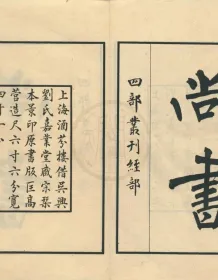 尚書
四部叢刊經部
上海涵芬樓借吳興
劉氏嘉業堂藏宋槧
本景印原書版匡高
營造尺六寸六分寬
四寸